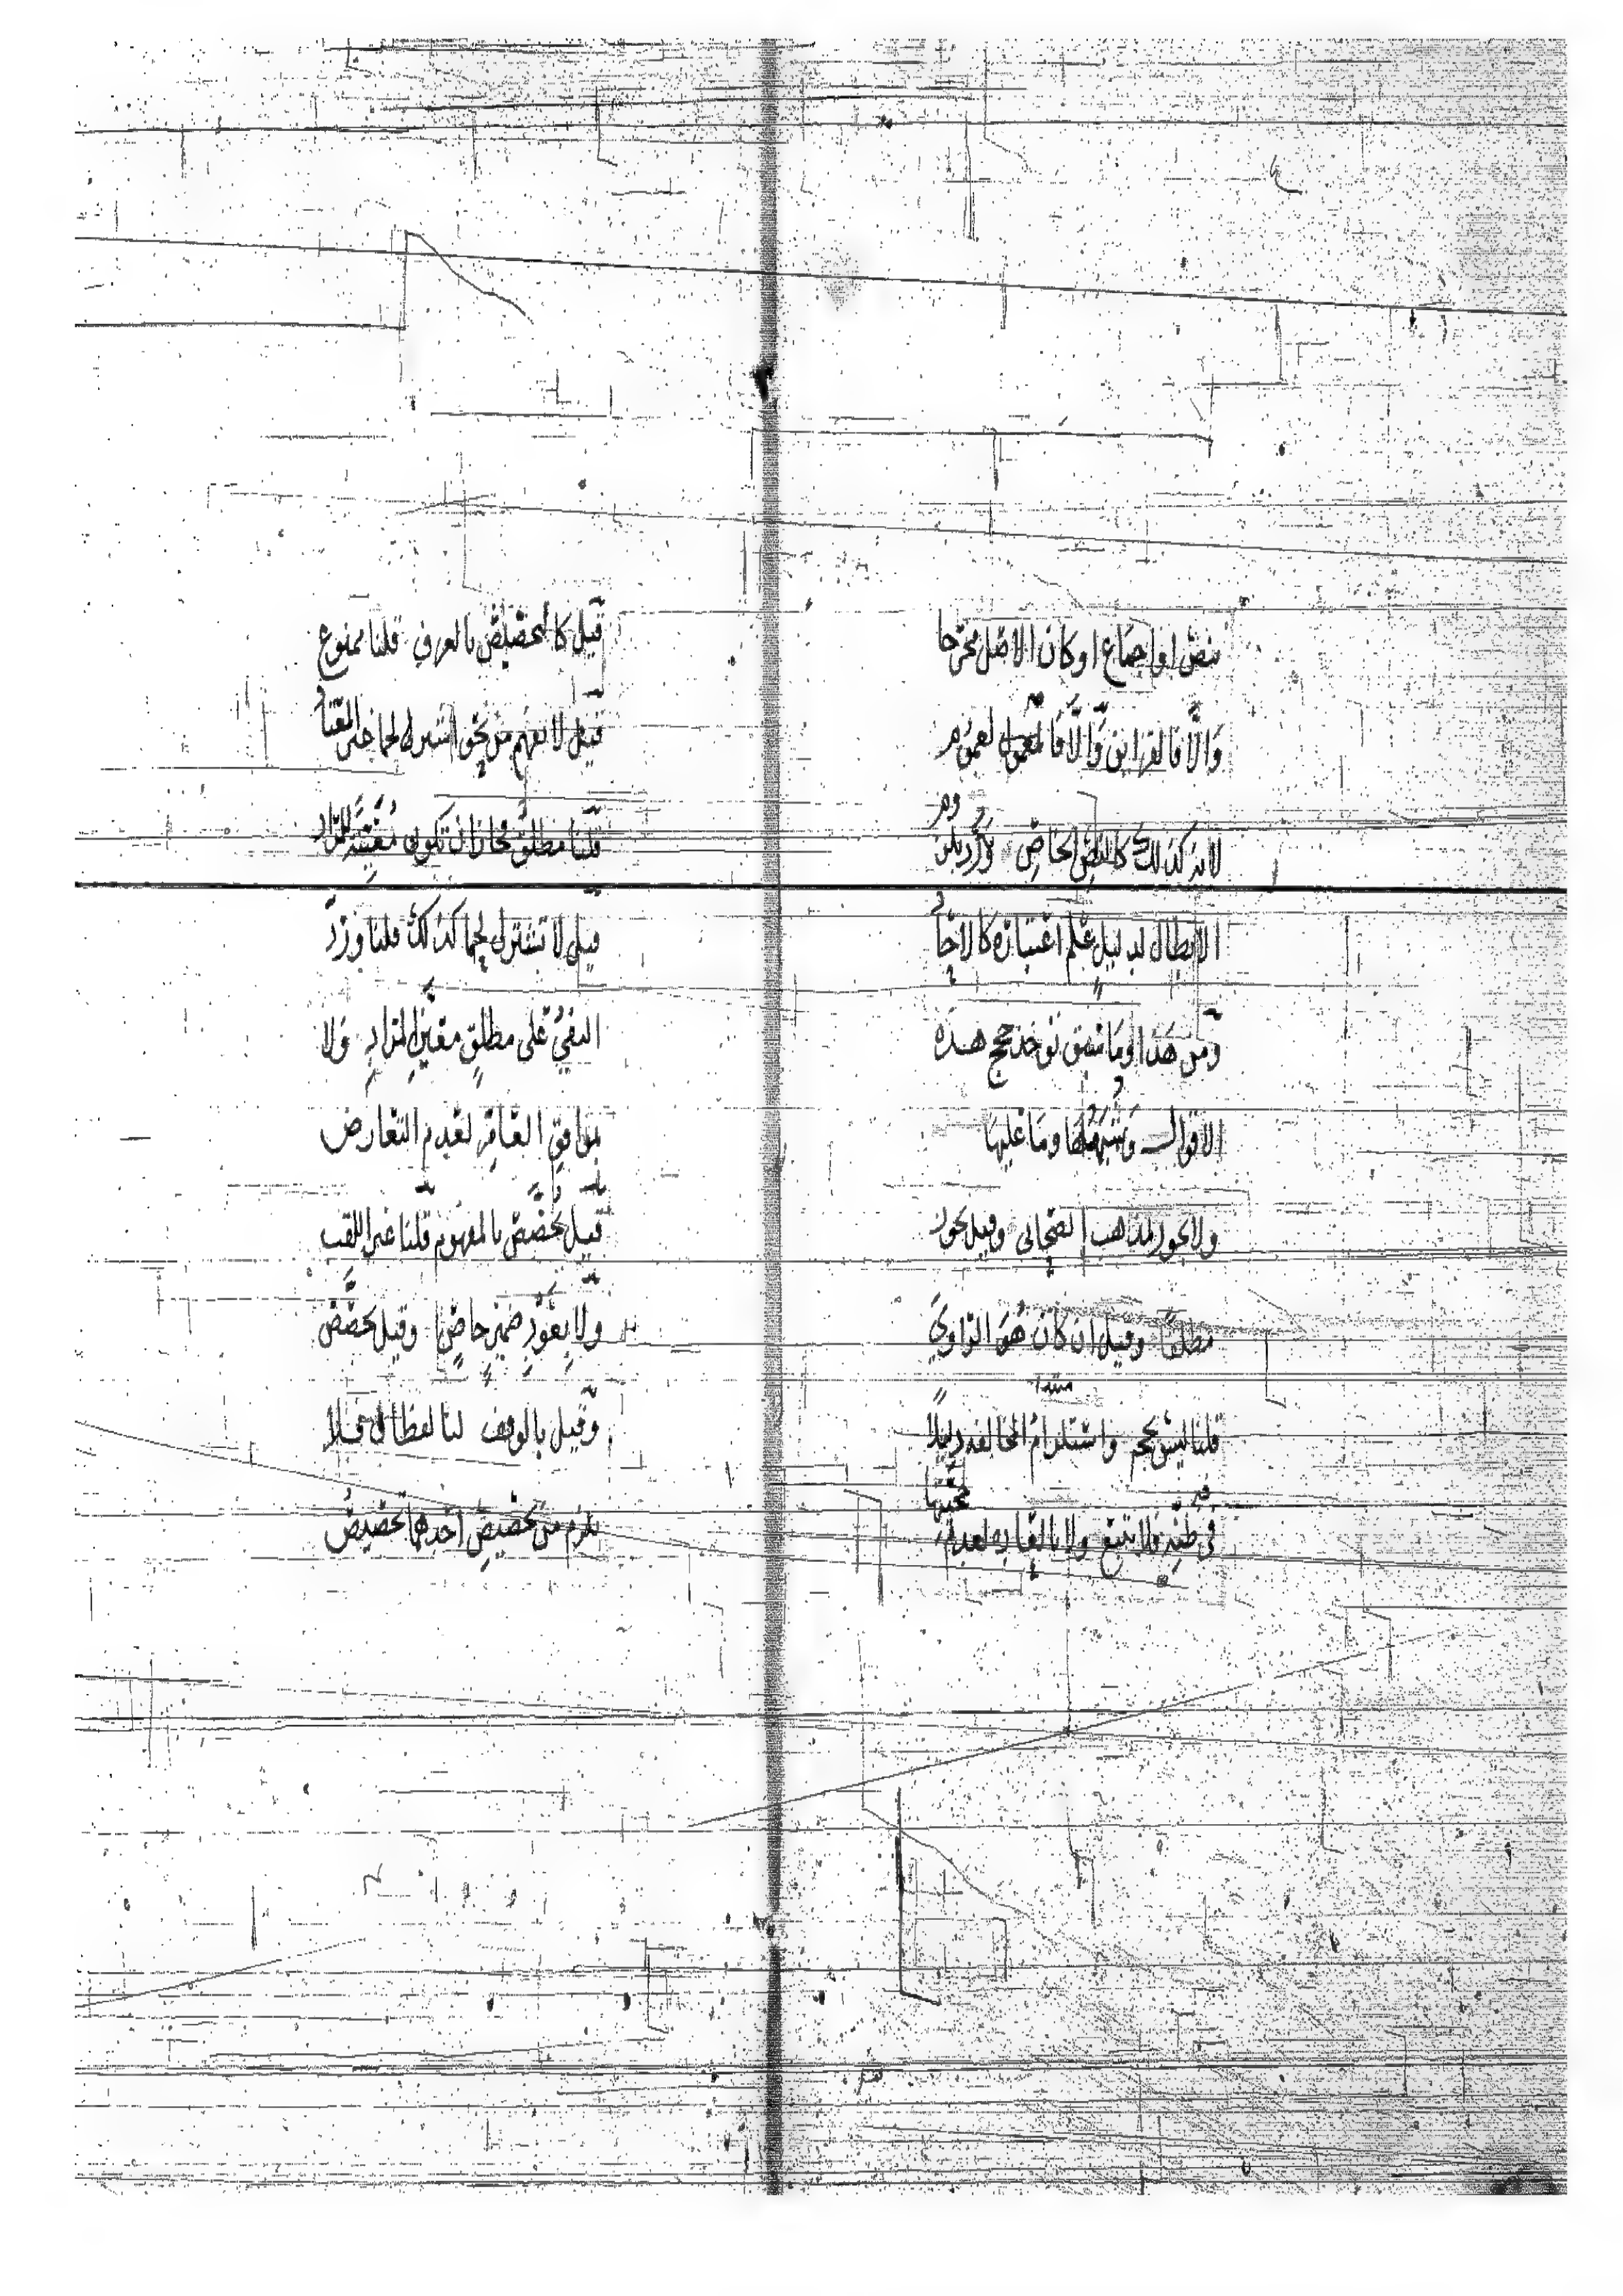 بنص او اجماع او كان الاصل مخرجا
وَالَّا فالقراين وَّالَّا فالمعمول لعموم
لانه كذلك كالنص الخاص وَرُدَّ بلزوم
الابطال لدليل عُلِم اعتباره كالاجماع
ومن هذا وما سبق تؤخذ حجج هذه
الاقوال وشبهها وما عليها
ولا يجوز لمذهب الصحابي وقيل يجوز
مطلقا وقيل ان كان هُوَ الراوي
قلنا ليس بحجه واستلزام المخالفه دليلًا
في ظنه فلا يتبع ولا بالعاده لعدم حجيتها
قيل كالتخصيص بالعرفي قلنا ممنوع
قيل لا يفهم من نحو اشتر لحما الا المعتاد
قلنا مطلق فجاز ان تكون مُقَيِّدَة للمراد
قيل لا تشتر لحما كذلك قلنا ورد
النفيُ على مطلقٍ مقيَّدِ المرادِ ولا
بموافق العامِ لعدم التعارض
قيل تخصَّص بالمفهوم قلنا غير اللقب
ولا بِعَوْدِ ضميرٍ خاصٍّ وقيل تخصَّصُ
وقيل بالوقف لنا لفظان فلا
يلزم من تخصيص احدهما تخصيصُ